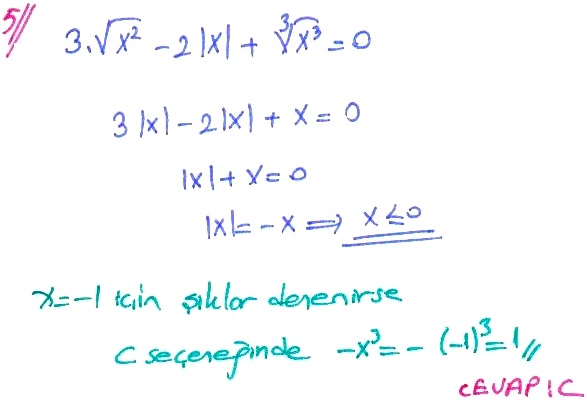 5//
3.√x² - 2|x| + ∛x³ = 0
3|x| - 2|x| + x = 0
|x| + x = 0
|x| = -x ⟹ x ≤ 0
x = -1 için şıklar denenirse
C seçeneğinde -x³ = -(-1)³ = 1//
CEVAP : C